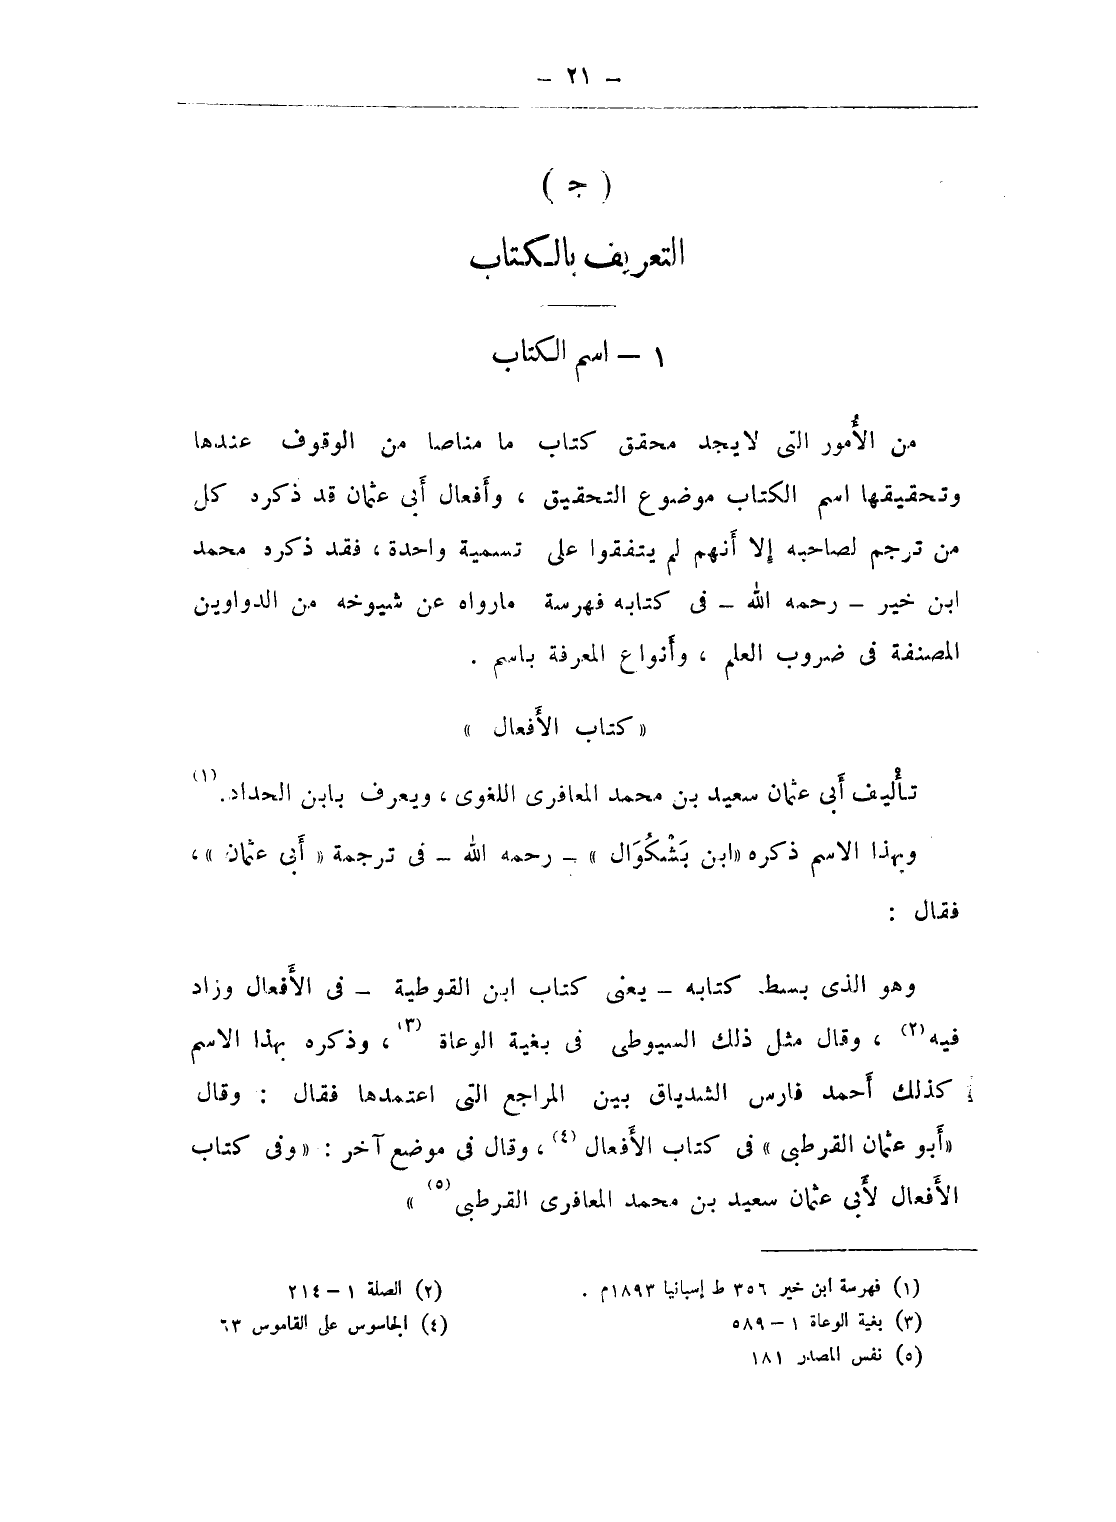 – ٢١ –
( ج )
التعريف بالكتاب
١ – اسم الكتاب
من الأُمور التى لايجد محقق كتاب ما مناصا من الوقوف عندها
وتحقيقها اسم الكتاب موضوع التحقيق ، وأَفعال أَبى عثمان قد ذكره كل
من ترجم لصاحبه إلا أَنهم لم يتفقوا على تسمية واحدة ، فقد ذكره محمد
ابن خير – رحمه الله – فى كتابه فهرسة مارواه عن شيوخه من الدواوين
المصنفة فى ضروب العلم ، وأَنواع المعرفة باسم .
« كتاب الأَفعال »
تأْليف أَبى عثمان سعيد بن محمد المعافرى اللغوى ، ويعرف بابن الحداد.(١)
وبهذا الاسم ذكره «ابن بَشْكُوَال » – رحمه الله – فى ترجمة « أَبى عثمان » ،
فقال :
وهو الذى بسط كتابه – يعنى كتاب ابن القوطية – فى الأَفعال وزاد
فيه(٢) ، وقال مثل ذلك السيوطى فى بغية الوعاة (٣) ، وذكره بهذا الاسم
كذلك أَحمد فارس الشدياق بين المراجع التى اعتمدها فقال : وقال
«أَبو عثمان القرطبى » فى كتاب الأَفعال (٤) ، وقال فى موضع آخر : « وفى كتاب
الأَفعال لأَبى عثمان سعيد بن محمد المعافرى القرطبى (٥) »
(١) فهرسة ابن خير ٣٥٦ ط إسبانيا ١٨٩٣م .
(٢) الصلة ١ – ٢١٤
(٣) بغية الوعاة ١ – ٥٨٩
(٤) الجاسوس على القاموس ٦٣
(٥) نفس المصدر ١٨١